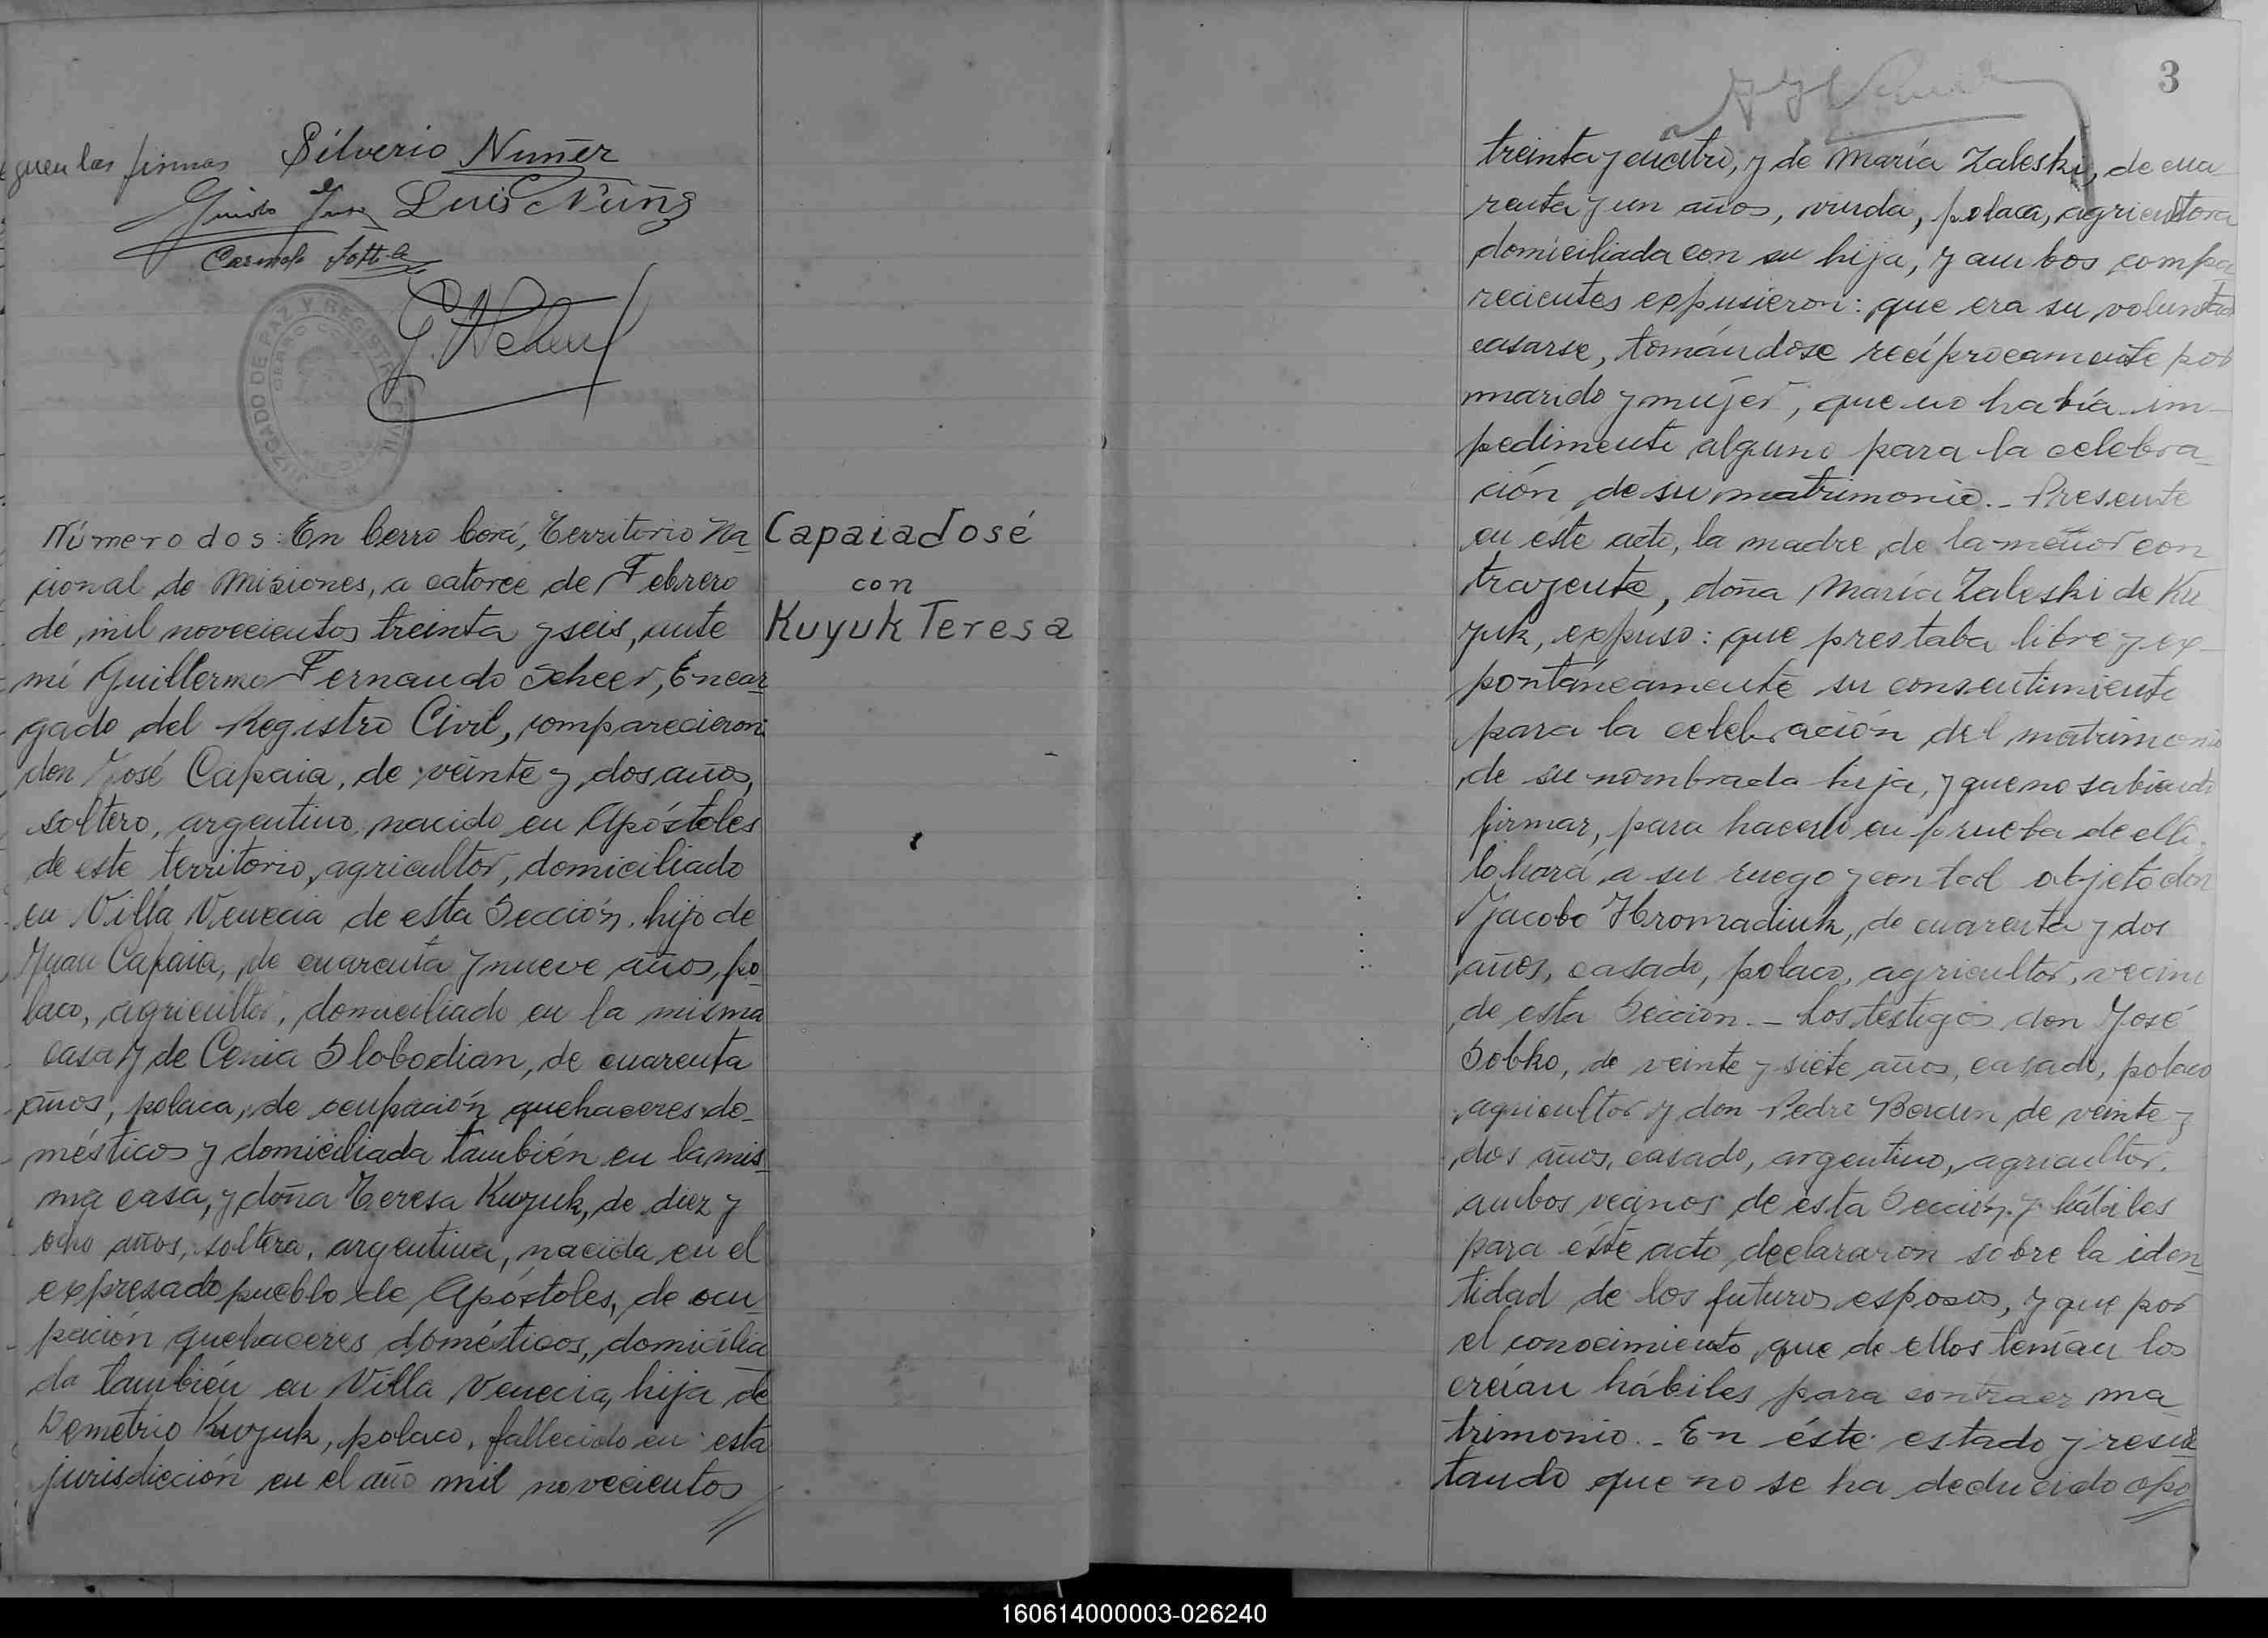 siguen las firmas Silverio Nuñez
Luis Nuñez
JUZGADO DE PAZ Y REGISTRO CIVIL
CERRO CORÁ
Número dos: En Cerro Corá, Territorio Na-
cional de Misiones, a catorce de Febrero
de mil novecientos treinta y seis, ante
mí Guillermo Fernando Scheer, Encar-
gado del Registro Civil, comparecieron:
don José Capaia, de veinte y dos años,
soltero, argentino, nacido en Apóstoles
de este territorio, agricultor, domiciliado
en Villa Venecia de esta Sección, hijo de
Juan Capaia, de cuarenta y nueve años, po-
laco, agricultor, domiciliado en la misma
casa y de Cenia Slobodian, de cuarenta
años, polaca, de ocupación quehaceres do-
mésticos y domiciliada también en la mis-
ma casa, y doña Teresa Kuyuk, de diez y
ocho años, soltera, argentina, nacida en el
expresado pueblo de Apóstoles, de ocu-
pación quehaceres domésticos, domicilia
da también en Villa Venecia, hija de
Demetrio Kuyuk, polaco, fallecido en esta
jurisdicción en el año mil novecientos
Capaia José
con
Kuyuk Teresa
3
treinta y cuatro, y de María Zaleski, de cua-
renta y un años, viuda, polaca, agricultora
domiciliada con su hija, y ambos compa
recientes expusieron: que era su voluntad
casarse, tomándose recíprocamente por
marido y mujer, que no había im-
pedimento alguno para la celebra-
ción de su matrimonio. - Presente
en este acto, la madre de la menor con
trayente, doña María Zaleski de Ku
yuk, expuso: que prestaba libre y ex-
pontáneamente su consentimiento
para la celebración del matrimonio
de su nombrada hija, y que no sabiendo
firmar, para hacerlo en prueba de ello,
lo hará a su ruego y con tal objeto don
Jacobo Hromadiuk, de cuarenta y dos
años, casado, polaco, agricultor, vecino
de esta Sección. - Los testigos don José
Sobko, de veinte y siete años, casado, polaco
agricultor y don Pedro Bercun de veinte y
dos años, casado, argentino, agricultor,
ambos vecinos de esta Sección y hábiles
para éste acto declararon sobre la iden-
tidad de los futuros esposos, y que por
el conocimiento que de ellos tenían los
creían hábiles para contraer ma-
trimonio. - En éste estado y resul
tando que no se ha deducido opo
160614000003-026240